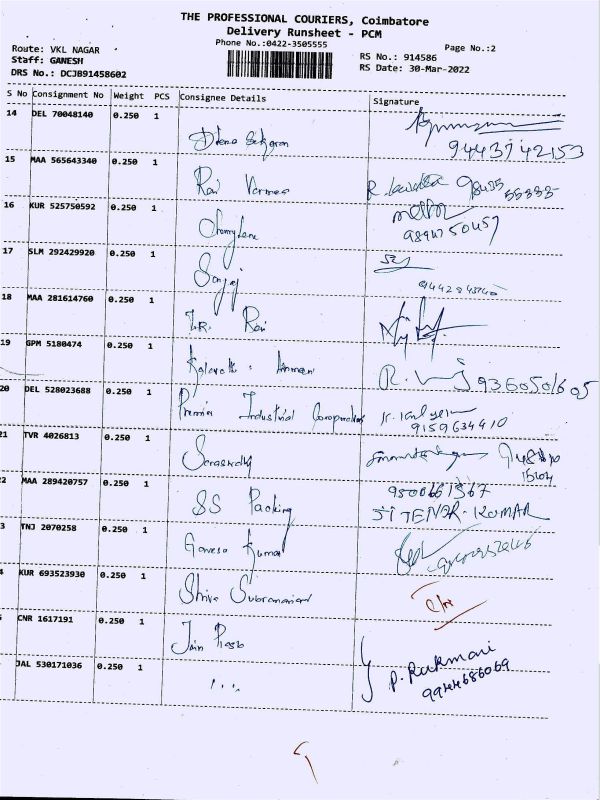 THE PROFESSIONAL COURIERS, Coimbatore
Delivery Runsheet - PCM
Phone No.:0422-3505555
Page No.:2
Route: VKL NAGAR
Staff: GANESH
DRS No.: DCJB91458602
RS No.: 914586
RS Date: 30-Mar-2022
S No Consignment No Weight PCS Consignee Details Signature
14 DEL 70048140 0.250 1
9443742153
15 MAA 565643340 0.250 1
Ravi Varman
16 KUR 525750592 0.250 1
17 SLM 292429920 0.250 1
Sanjai
18 MAA 281614760 0.250 1
T.R. Ravi
19 GPM 5180474 0.250 1
9360501605
20 DEL 528023688 0.250 1
Premier Industrial Corporation
9159634410
21 TVR 4026813 0.250 1
22 MAA 289420757 0.250 1
SS Packing
9500661567
JITENDR. KUMAR
3 TNJ 2070258 0.250 1
Ganesa Kumar
4 KUR 693523930 0.250 1
Shiva Subramaniam
CNR 1617191 0.250 1
Jain
JAL 530171036 0.250 1
P. Rukmani
9944686069